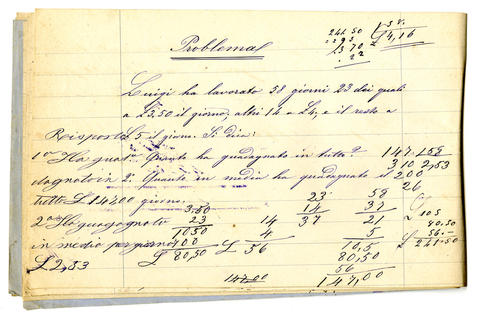 Problema
241.50
58
4,16
370
22
Luigi ha lavorato 58 giorni 23 dei quali
a £3,50 il giorno, altri 14 a £4, e il resto a
Risposta £5 il giorno. Si dica:
1º Ha gua- 1º Quanto ha guadagnato in tutto? 147 58
dagnato in 2º Quanto in media ha guadagnato il 310 2,53
tutto £ 14700 giorno. 200
26
3.50 23 58
2º Ha guadagnato 23 14 14 37 105
1050 4 37 21 80.50
in media per giorno 700 £ 56 5 56.-
£ 2,53 £ 80,50 10,5 £ 241.50
80,50
56
147.00 147,00